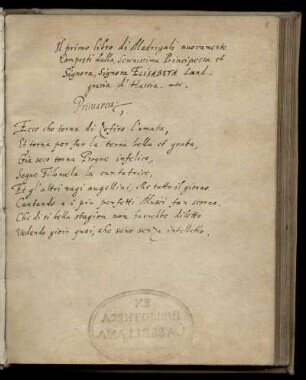 Il primo libro di Madrigali nuovamente
Composti dalla Serenissima Principessa et
Signora, Signora ELISABETA Land-
gravia di Hassia. etc.
Primavera
Ecco che torna di Zefiro l'ornata,
Et torna por far la terra bella et grata,
Già seco torna Progne infelice,
Segue Filomela la cantatrice,
Et gl'altri vagi augellini, che tutto il giorno
Cantando a i piu perfetti Musici fan scorno.
Chi di si bella stagion non havesse diletto
Vedendo gioir quei, che sono senza intelletto.
EX
BIBLIOTHECA
CASSELLANA